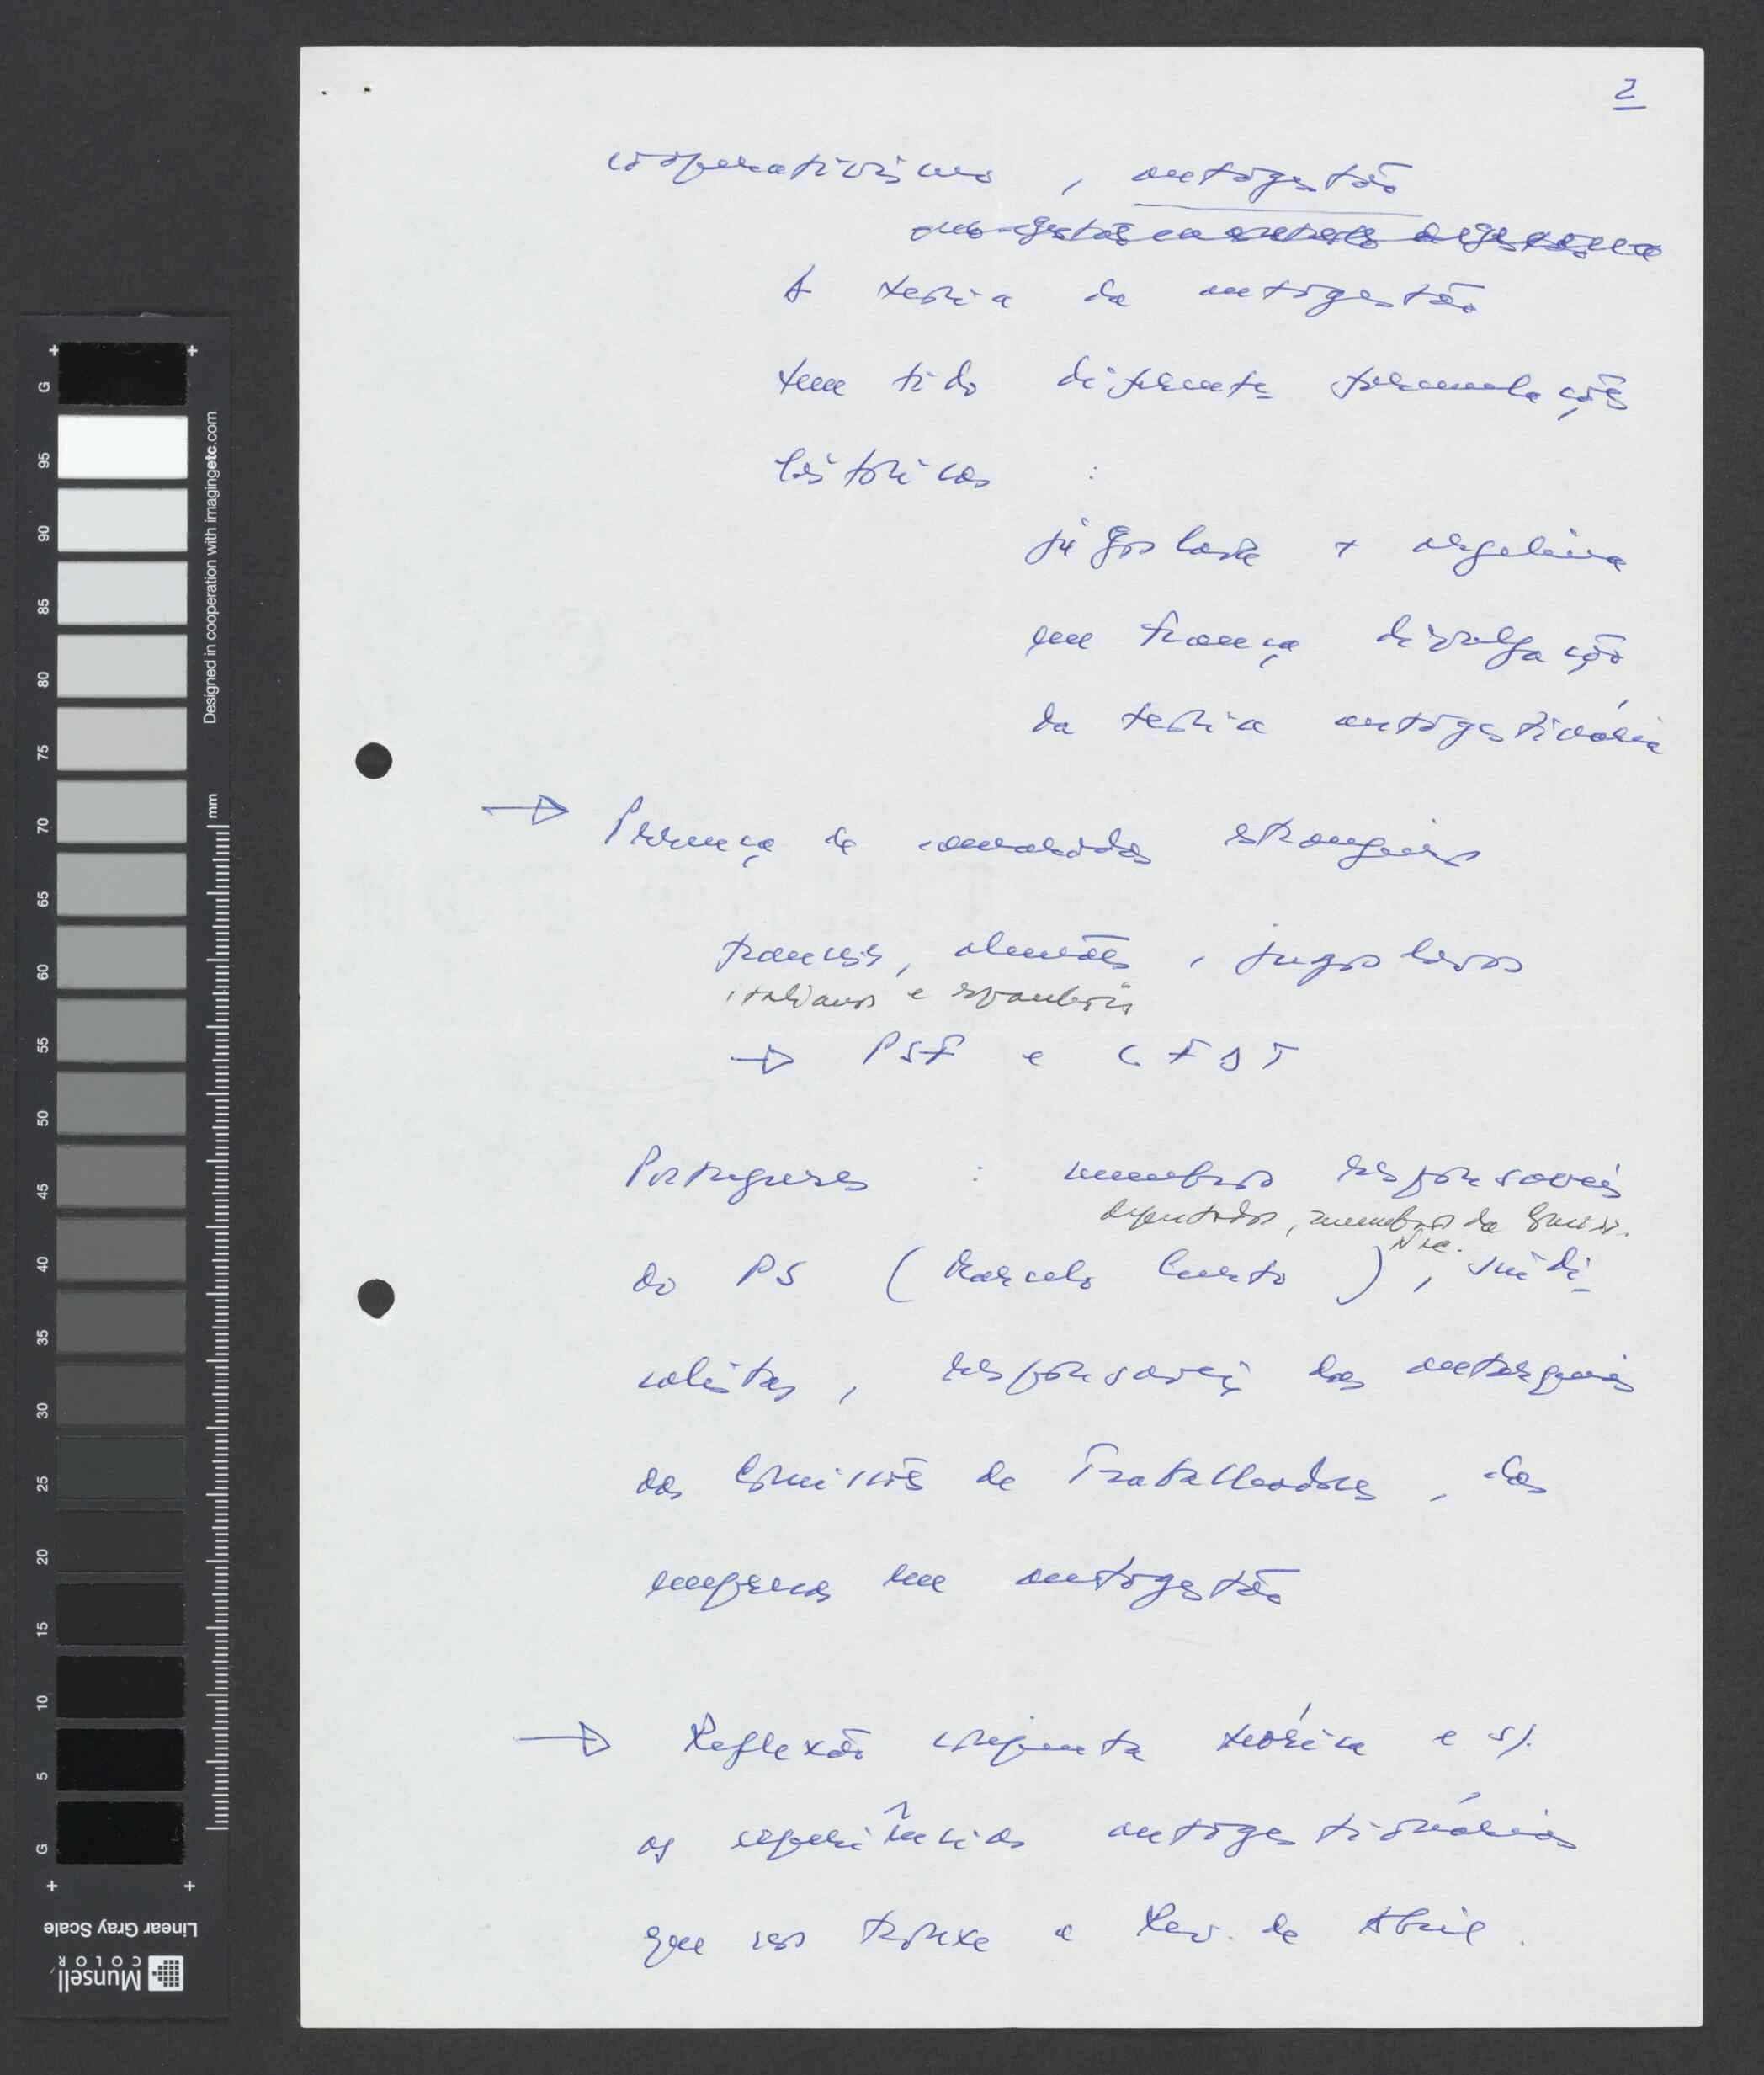 2
cooperativismo, autogestão
A teoria da autogestão
tem tido diferentes formulações
históricas :
jugoslava + argelina
em França divulgação
da teoria autogestionária
→ Presença de camaradas estrangeiros
franceses, alemães, jugoslavos
italianos e espanhóis
→ PSF e CFDT
Portugueses : membros responsáveis
deputados, membros da Comiss.
Nac.
do PS (Marcelo Curto), sindi-
calistas, responsáveis das
das Comissões de Trabalhadores, das
empresas em autogestão
→ Reflexão conjunta teórica e s/.
as experiências autogestionárias
que nos trouxe a Rev. de Abril.
G
95
90
85
80
75
70
65
60
55
50
45
40
35
30
25
20
15
10
5
G
Designed in cooperation with imagingetc.com
mm
Linear Gray Scale
Munsell
COLOR